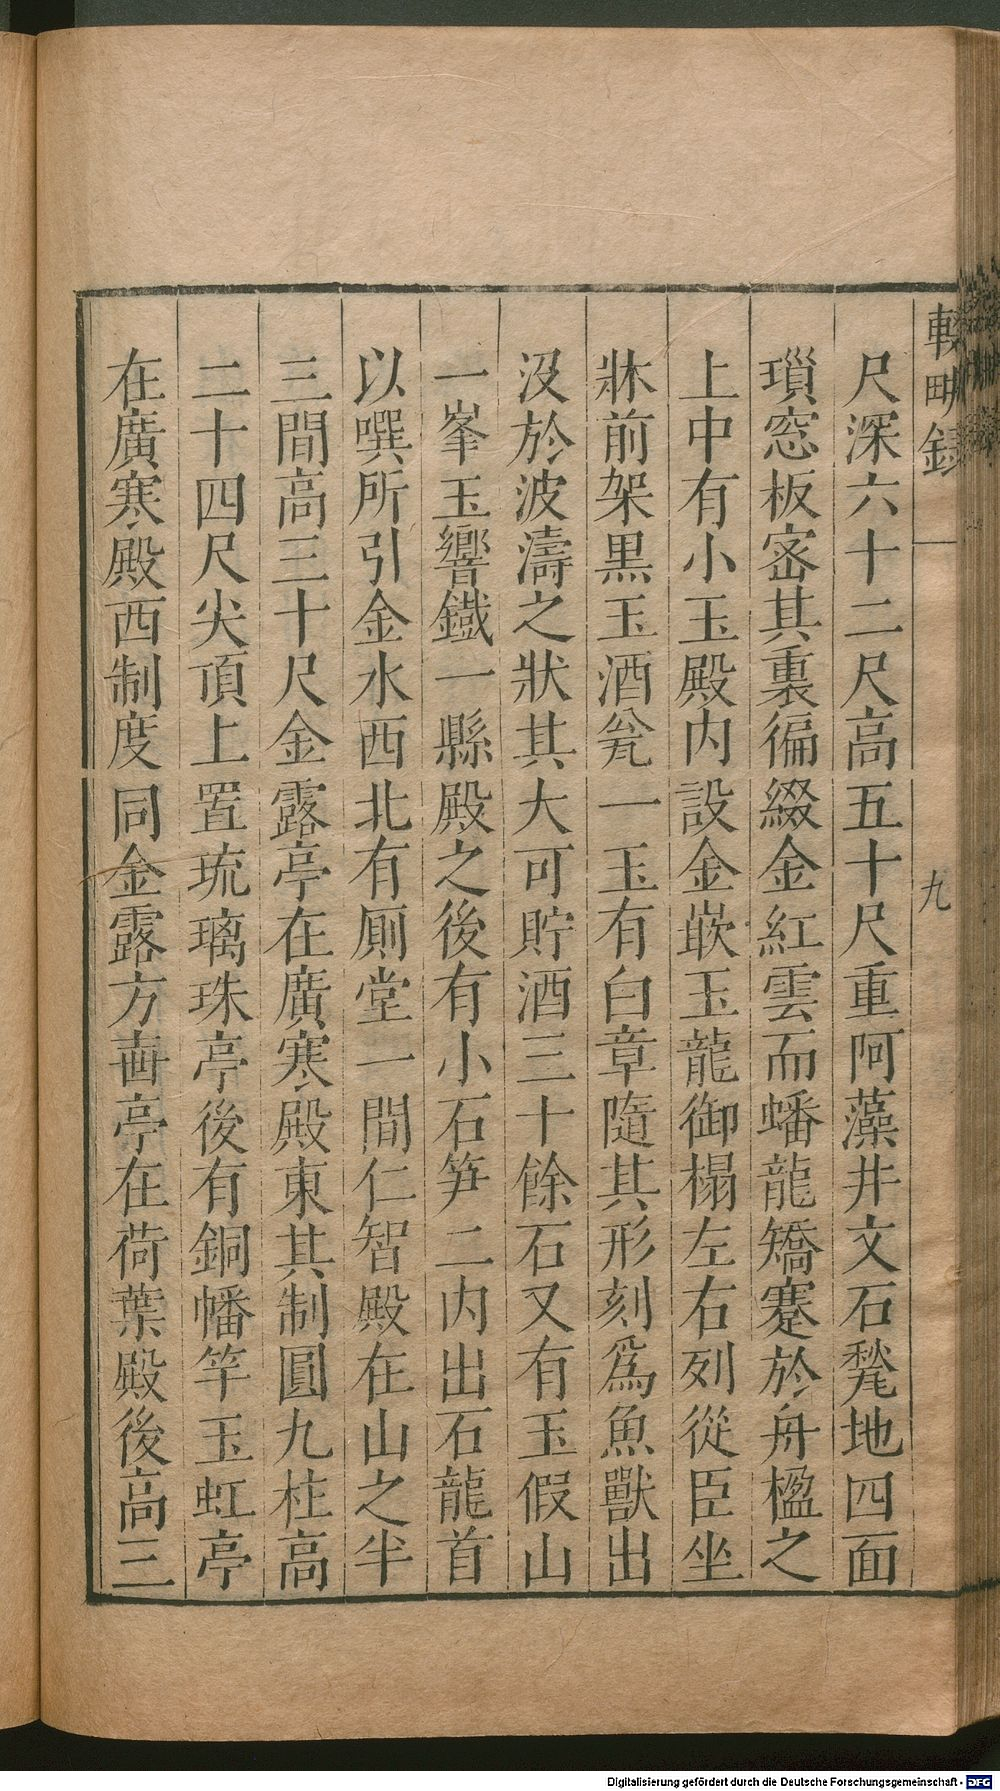 輟畊錄
九
尺深六十二尺高五十尺重阿藻井文石甃地四面
瑣窓板宻其裏徧綴金紅雲而蟠龍矯蹇於舟楹之
上中有小玉殿内設金嵌玉龍御榻左右列從臣坐
牀前架黒玉酒瓮一玉有白章隨其形刻爲魚獸出
没於波濤之狀其大可貯酒三十餘石又有玉假山
一峯玉響鐵一縣殿之後有小石笋二内出石龍首
以噀所引金水西北有厠堂一間仁智殿在山之半
三間高三十尺金露亭在廣寒殿東其制圓九柱高
二十四尺尖頂上置琉璃珠亭後有銅幡竿玉虹亭
在廣寒殿西制度同金露方壺亭在荷葉殿後高三
Digitalisierung gefördert durch die Deutsche Forschungsgemeinschaft - DFG